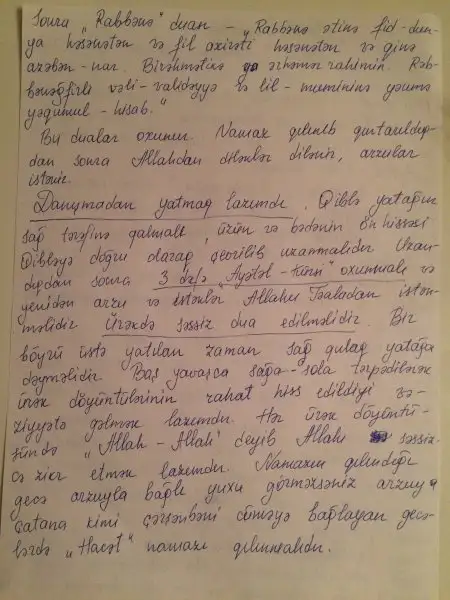 Sonra „Rabbənə" duası – „Rabbənə ətinə fid-dun-
ya həsənətən və fil axirəti həsənətən və ginə
azabən-nar. Birəhmətinə ya ərhəmər rahimin. Rəb-
bənəğfirli vəli-validəyyə və lil-mumininə yəumə
yəgumul-hisab."
Bu dualar oxunur. Namaz qılınıb qurtarıldıq-
dan sonra Allahdan diləklər dilənir, arzular
istənir.
Danışmadan yatmaq lazımdır. Qiblə yatağın
sağ tərəfinə qalmalı, üzün və bədənin ön hissəsi
Qibləyə doğru olaraq çevrilib uzanmalıdır. Uzan-
dıqdan sonra 3 dəfə "Ayətəl-kürsi" oxunmalı və
yenidən arzu və istənlər Allahu Təaladan istən-
məlidir. Ürəkdə səssiz dua edilməlidir. Bir
böyrü üstə yatılan zaman sağ qulaq yatağa
dəyməlidir. Baş yavaşca sağa-sola tərpədilərək
ürək döyüntülərinin rahat hiss edildiyi və-
ziyyətə gəlmək lazımdır. Hər ürək döyüntü-
sündə „Allah-Allah" deyib Allahı səssiz-
cə zikr etmək lazımdır. Namazın qılındığı
gecə arzuyla bağlı yuxu görməzsəniz arzuya
çatana kimi çərşənbəni cüməyə bağlayan gecə-
lərdə „Hacət" namazı qılınmalıdır.